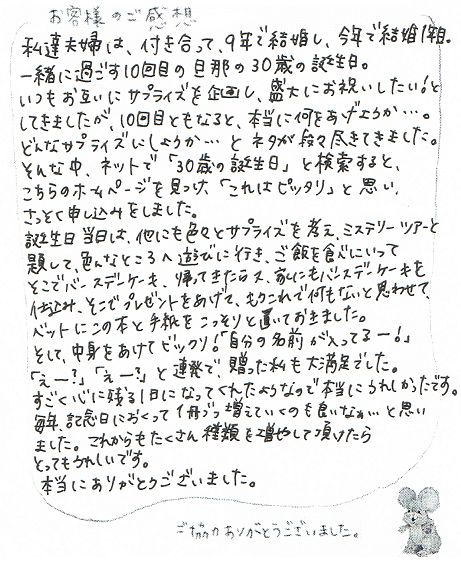 お客様のご感想
私達夫婦は、付き合って、9年で結婚し、今年で結婚1年目。
一緒に過ごす10回目の旦那の30歳の誕生日。
いつもお互いにサプライズを企画し、盛大にお祝いしたい!と
してきましたが、10回目ともなると、本当に何をあげようか…。
どんなサプライズにしようか…とネタが段々尽きてきました。
そんな中、ネットで「30歳の誕生日」と検索すると、
こちらのホームページを見つけ、「これはピッタリ」と思い、
さっそく申し込みをしました。
誕生日当日は、他にも色々とサプライズを考え、ミステリーツアーと
題して、色んなところへ遊びに行き、ご飯を食べにいって
そこでバースデーケーキ、帰ってきたら又、家にもバースデーケーキを
仕込み、そこでプレゼントをあげて、もうこれで何もないと思わせて、
ベットにこの本と手紙をこっそりと置いておきました。
そして、中身をあけてビックリ!「自分の名前が入ってるー!」
「えー?」「えー?」と連発で、贈った私も大満足でした。
すごく心に残る1日になってくれたようなので本当にうれしかったです。
毎年、記念日におくって1冊づつ増えていくのも良いなぁ…と思い
ました。これからもたくさん種類を増やして頂けたら
とってもうれしいです。
本当にありがとうございました。
ご協力ありがとうございました。